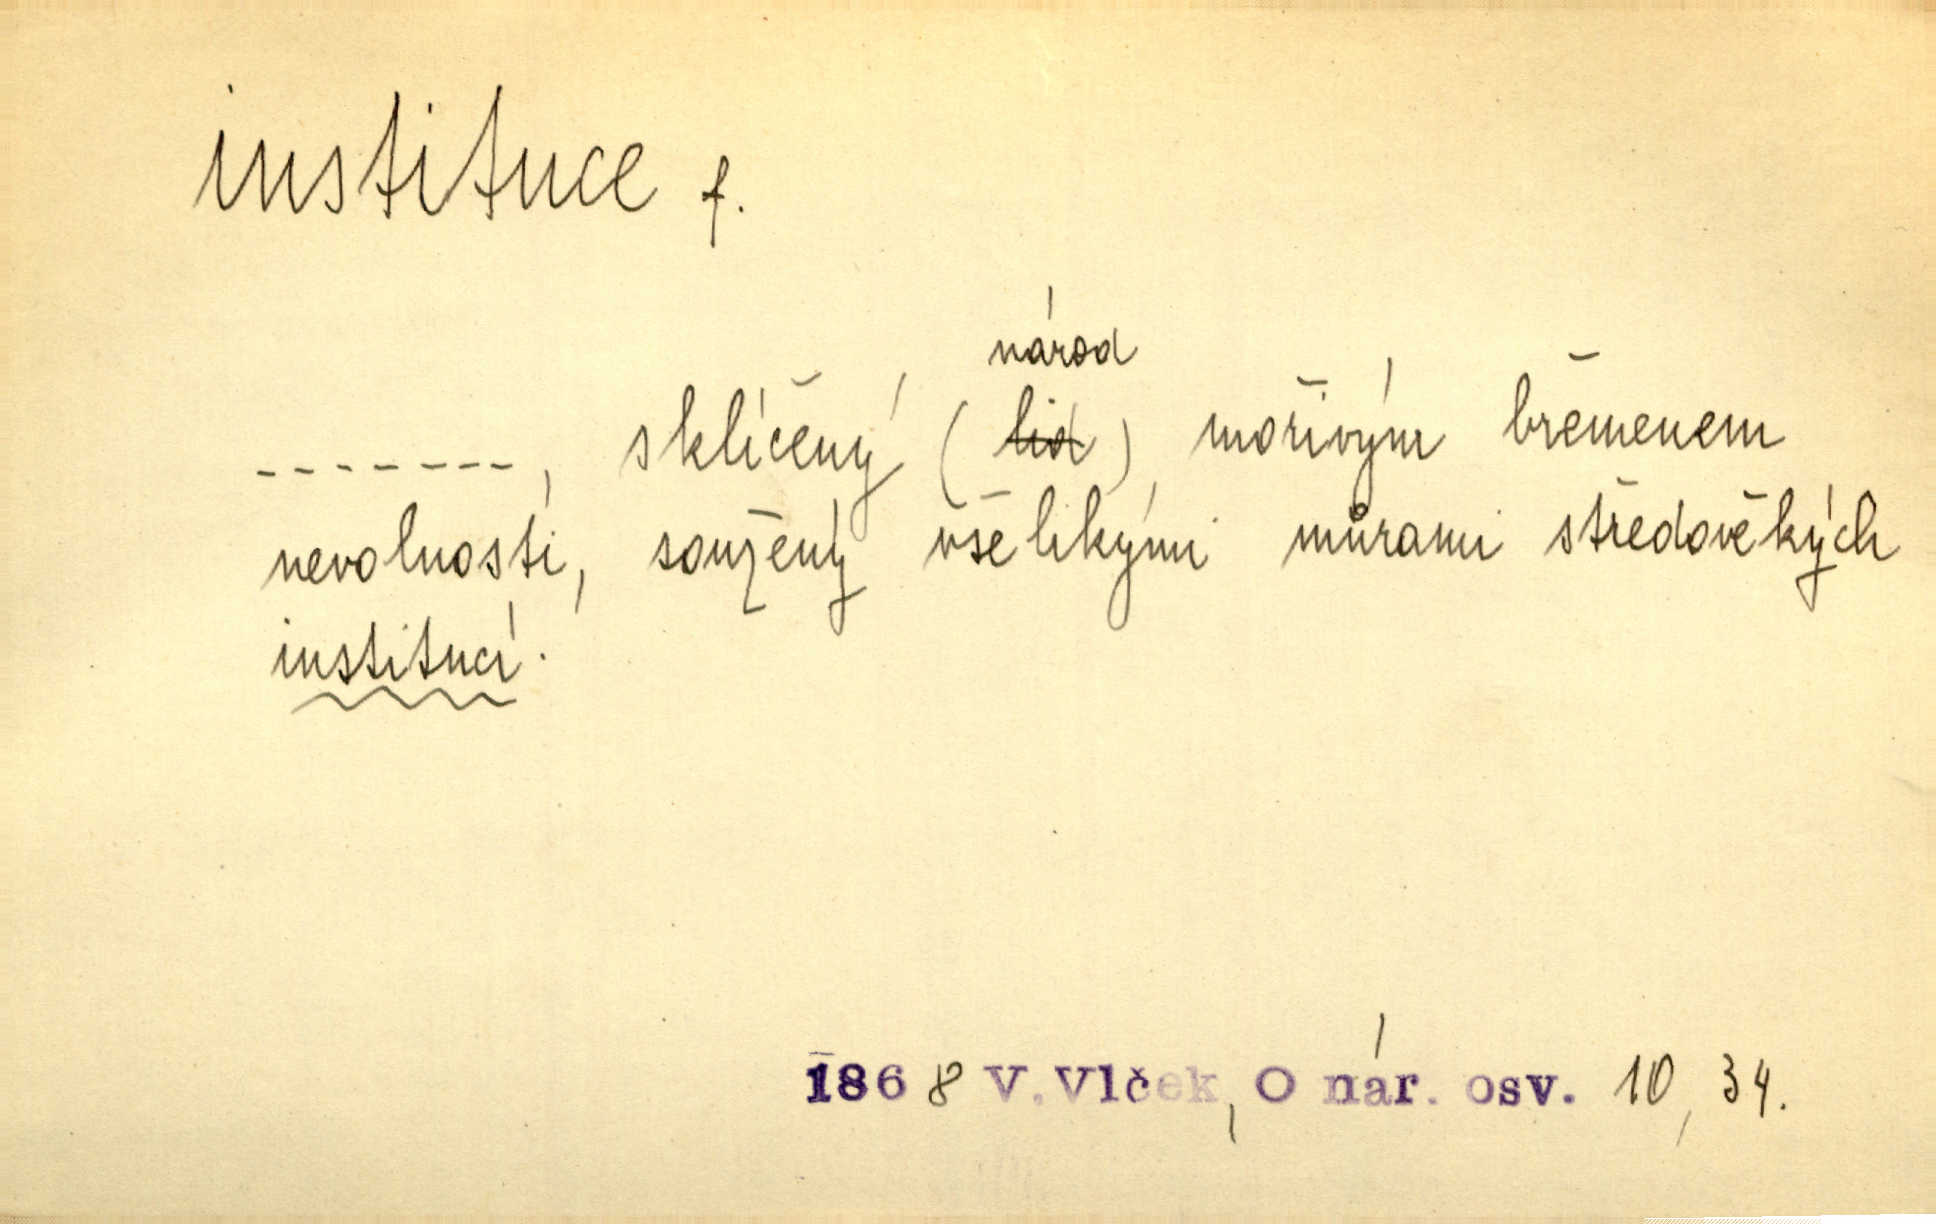 instituce f.
národ
-------, sklíčený (lid), mořivým břemenem
nevolnosti, soužený všelikými můrami středověkých
institucí.
1868 V. Vlček, O nár. osv. 10, 34.